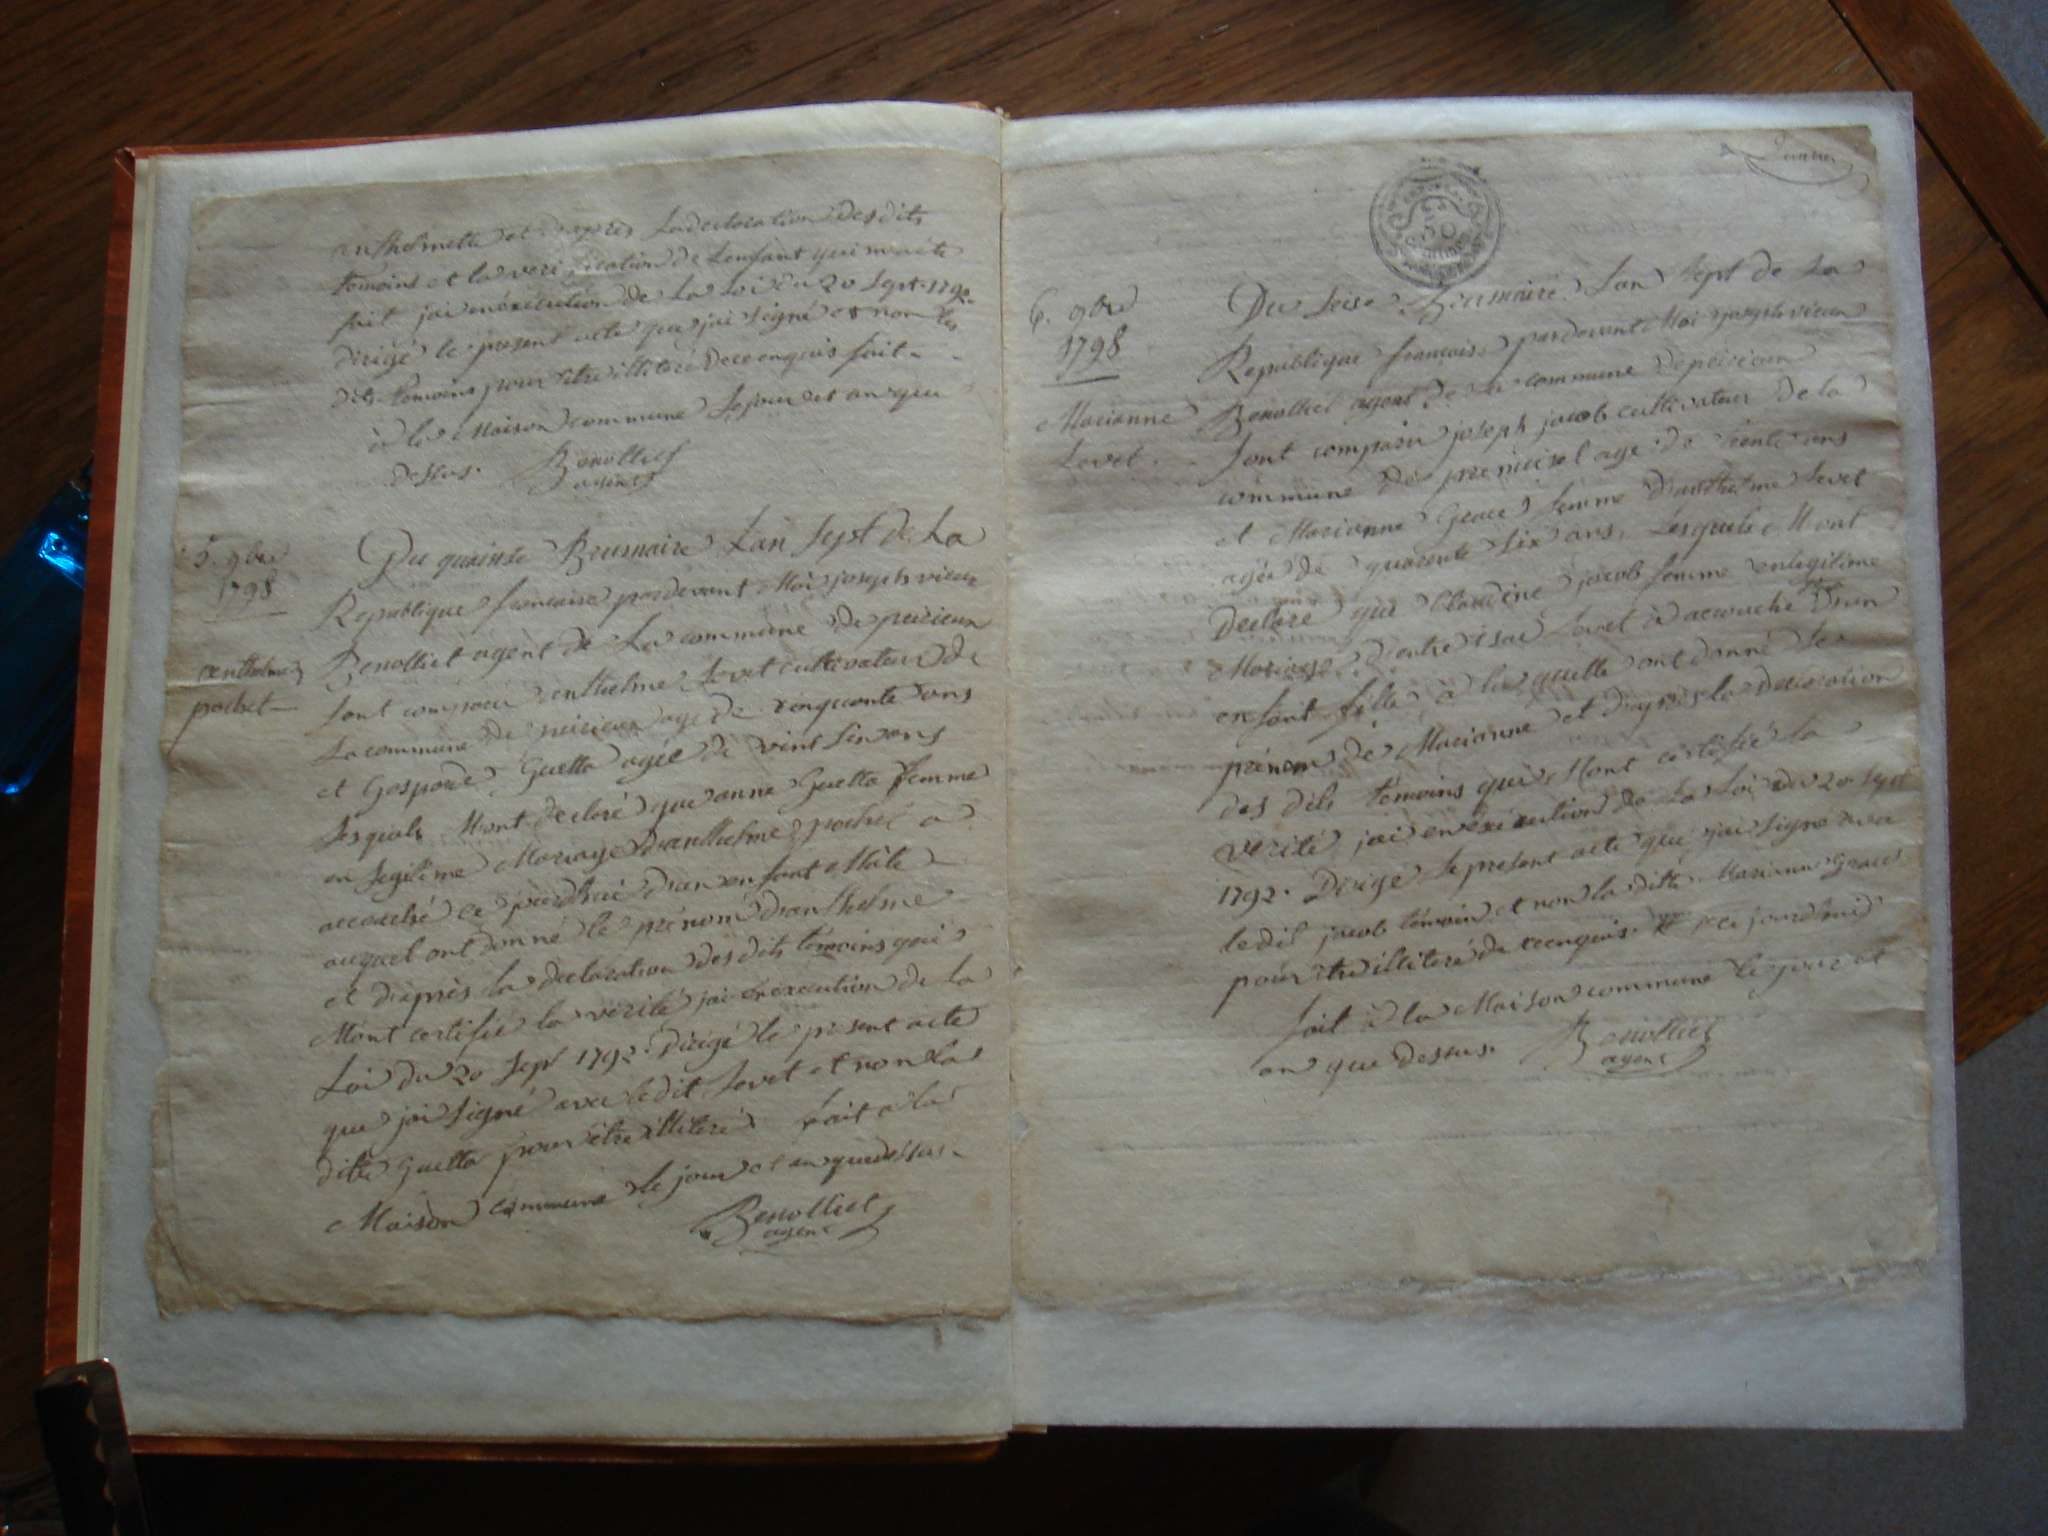 anthelmette et d'après la declaration desdits
temoins et la verification de l'enfant qui m'a été
fait j'ai en exécution de la Loi du 20 Sept. 1792
dirigé le present acte que j'ai signé et non les
dits temoins pour être illiteré de ce enquis fait
à la Maison commune le jour et an que
dessus. Benolliet
agent
5. 9bre
1798
anthelme
pochet
Du quinse Brumaire Lan sept de La
Republique francaise pardevant Moi joseph vieux
Benolliet agent de La commune de peizieux
sont comparu anthelme Levet cultivateur de
La commune de peizieux age de cinquante ans
et Gasparde Guetta agée de vint six ans
Lesquels M'ont declaré que anne Guetta femme
en Legitime Mariage d'anthelme pochet a
accouché ce jourdhui d'un enfant Mâle
auquel ont donné le prénom d'anthelme
et d'après la declaration des dits témoins qui
M'ont certifié la verité j'ai en exécution de la
Loi du 20 Sept 1792. Dirigé le present acte
que j'ai signé avec ledit Levet et non la
ditte Guetta pour être illiteré fait à la
Maison commune le jour et an que dessus.
Benolliet
agent
6. 9bre
1798
Marianne
Levet.
Du seise Brumaire Lan sept de La
Republique francaise pardevant Moi joseph vieux
Benolliet agent de la commune de peizieux
sont comparu joseph jacob cultivateur de la
commune de premeizel age de trente ans
et Marianne Grace femme d'anthelme Levet
agée de quarente six ans, Lesquels M'ont
Declaré que Claudine jacob femme en legitime
Mariage d'entre isac Levet à accouché d'un
enfant fille à la quelle ont donné le
prénom de Marianne et d'après la declaration
des dits témoins qui M'ont certifié la
verité j'ai en exécution de La Loi du 20 Sept
1792. Dirigé le present acte que j'ai signé avec
ledit jacob témoin et non la ditte Marianne Grace
pour être illiteré de ce enquis. # ce jourdhuid
fait à la Maison commune le jour et
an que dessus. Benolliet
agent